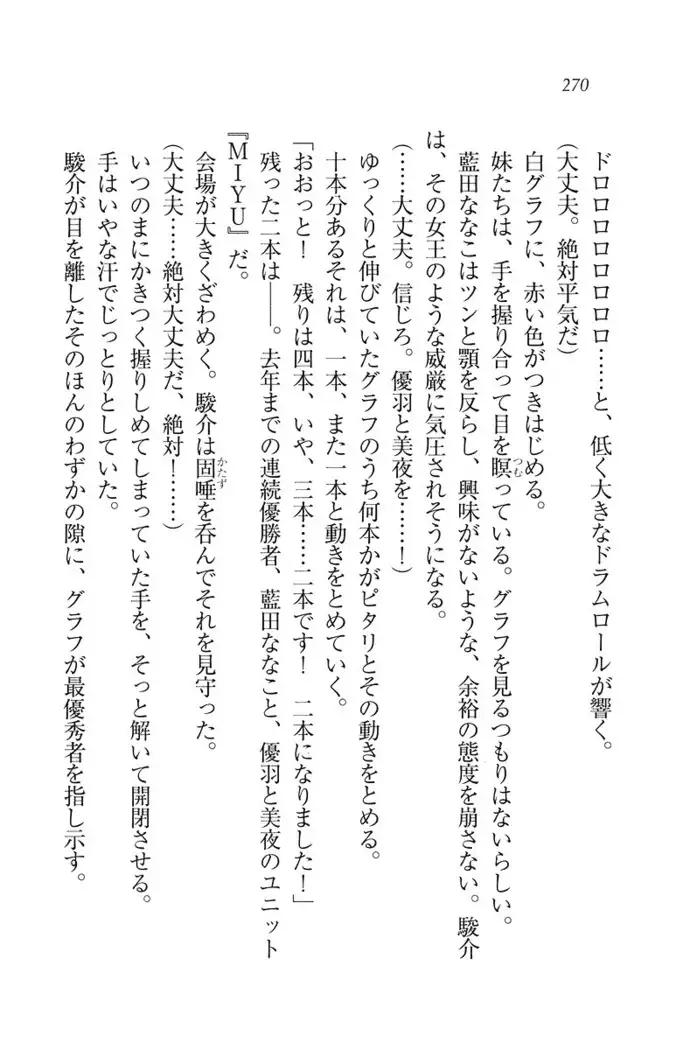 270
ドロロロロロロロ……と、低く大きなドラムロールが響く。
(大丈夫。絶対平気だ)
白グラフに、赤い色がつきはじめる。
妹たちは、手を握り合って目を瞑っている。グラフを見るつもりはないらしい。
つむ
藍田ななこはツンと顎を反らし、興味がないような、余裕の態度を崩さない。駿介
は、その女王のような威厳に気圧されそうになる。
(……大丈夫。信じろ。優羽と美夜を……！)
ゆっくりと伸びていたグラフのうち何本かがピタリとその動きをとめる。
十本分あるそれは、一本、また一本と動きをとめていく。
「おおっと！　残りは四本、いや、三本……二本です！　二本になりました！」
残った二本は――。去年までの連続優勝者、藍田ななこと、優羽と美夜のユニット
『MIYU』だ。
会場が大きくざわめく。駿介は固唾を呑んでそれを見守った。
かたず
(大丈夫……絶対大丈夫だ、絶対！……)
いつのまにかきつく握りしめてしまっていた手を、そっと解いて開閉させる。
手はいやな汗でじっとりとしていた。
駿介が目を離したそのほんのわずかの隙に、グラフが最優秀者を指し示す。